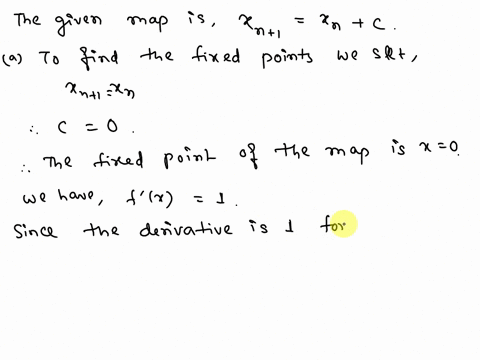 The given map is, x_{n+1} = x_n + c.
(a) To find the fixed points we set,
x_{n+1} = x_n
∴ c = 0.
∴ The fixed point of the map is x = 0.
we have, f'(x) = 1.
Since the derivative is 1 for